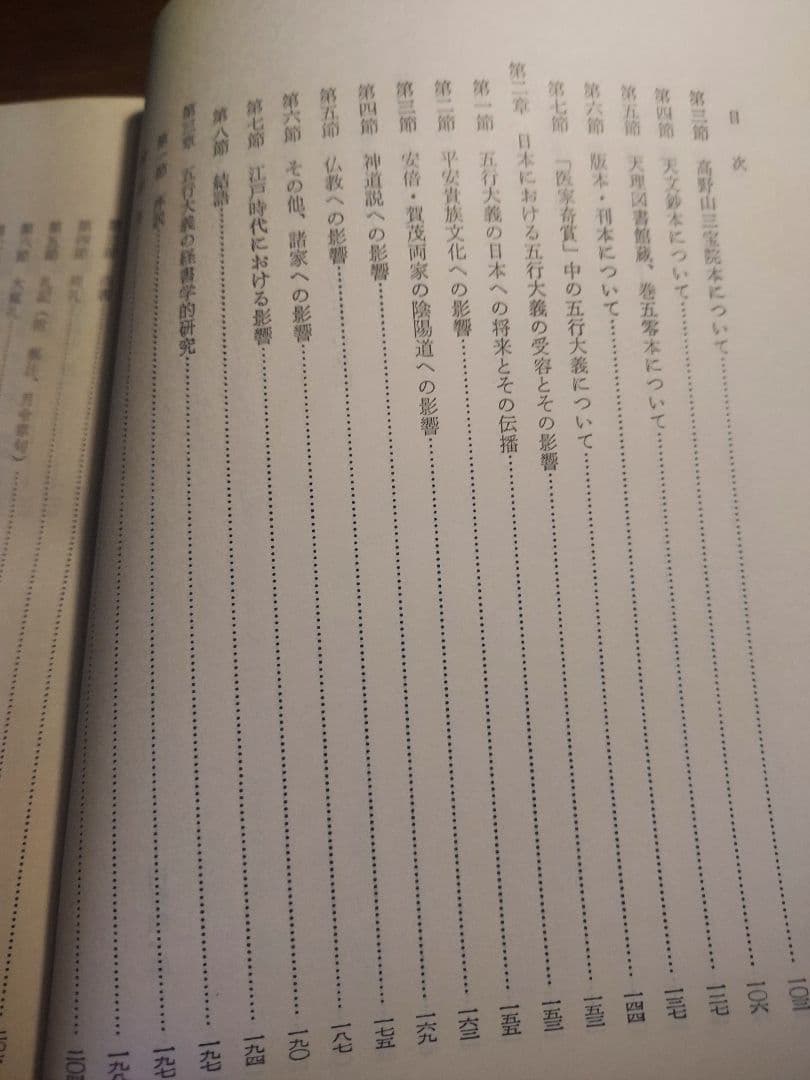 目次
第三節 高野山三宝院本について……一〇三
第四節 天文鈔本について……一〇六
第五節 天理図書館蔵、巻五零本について……一二七
第六節 版本・刊本について……一三七
第七節 「医家奇賞」中の五行大義について……一四四
第二章 日本における五行大義の受容とその影響……一五三
第一節 五行大義の日本への将来とその伝播……一五三
第二節 平安貴族文化への影響……一五五
第三節 安倍・賀茂両家の陰陽道への影響……一六三
第四節 神道説への影響……一六九
第五節 仏教への影響……一七五
第六節 その他、諸家への影響……一八七
第七節 江戸時代における影響……一九〇
第八節 結語……一九四
第三章 五行大義の経書学的研究……一九七
第一節 序説……一九七